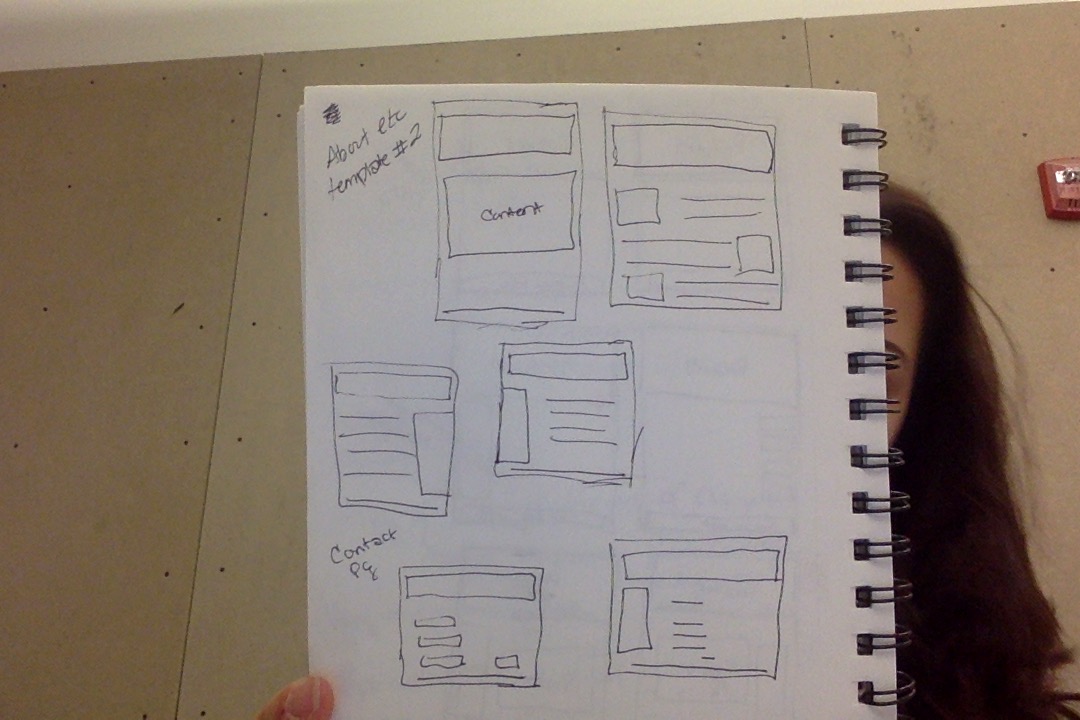 About etc
template #2
Content
Contact
pg